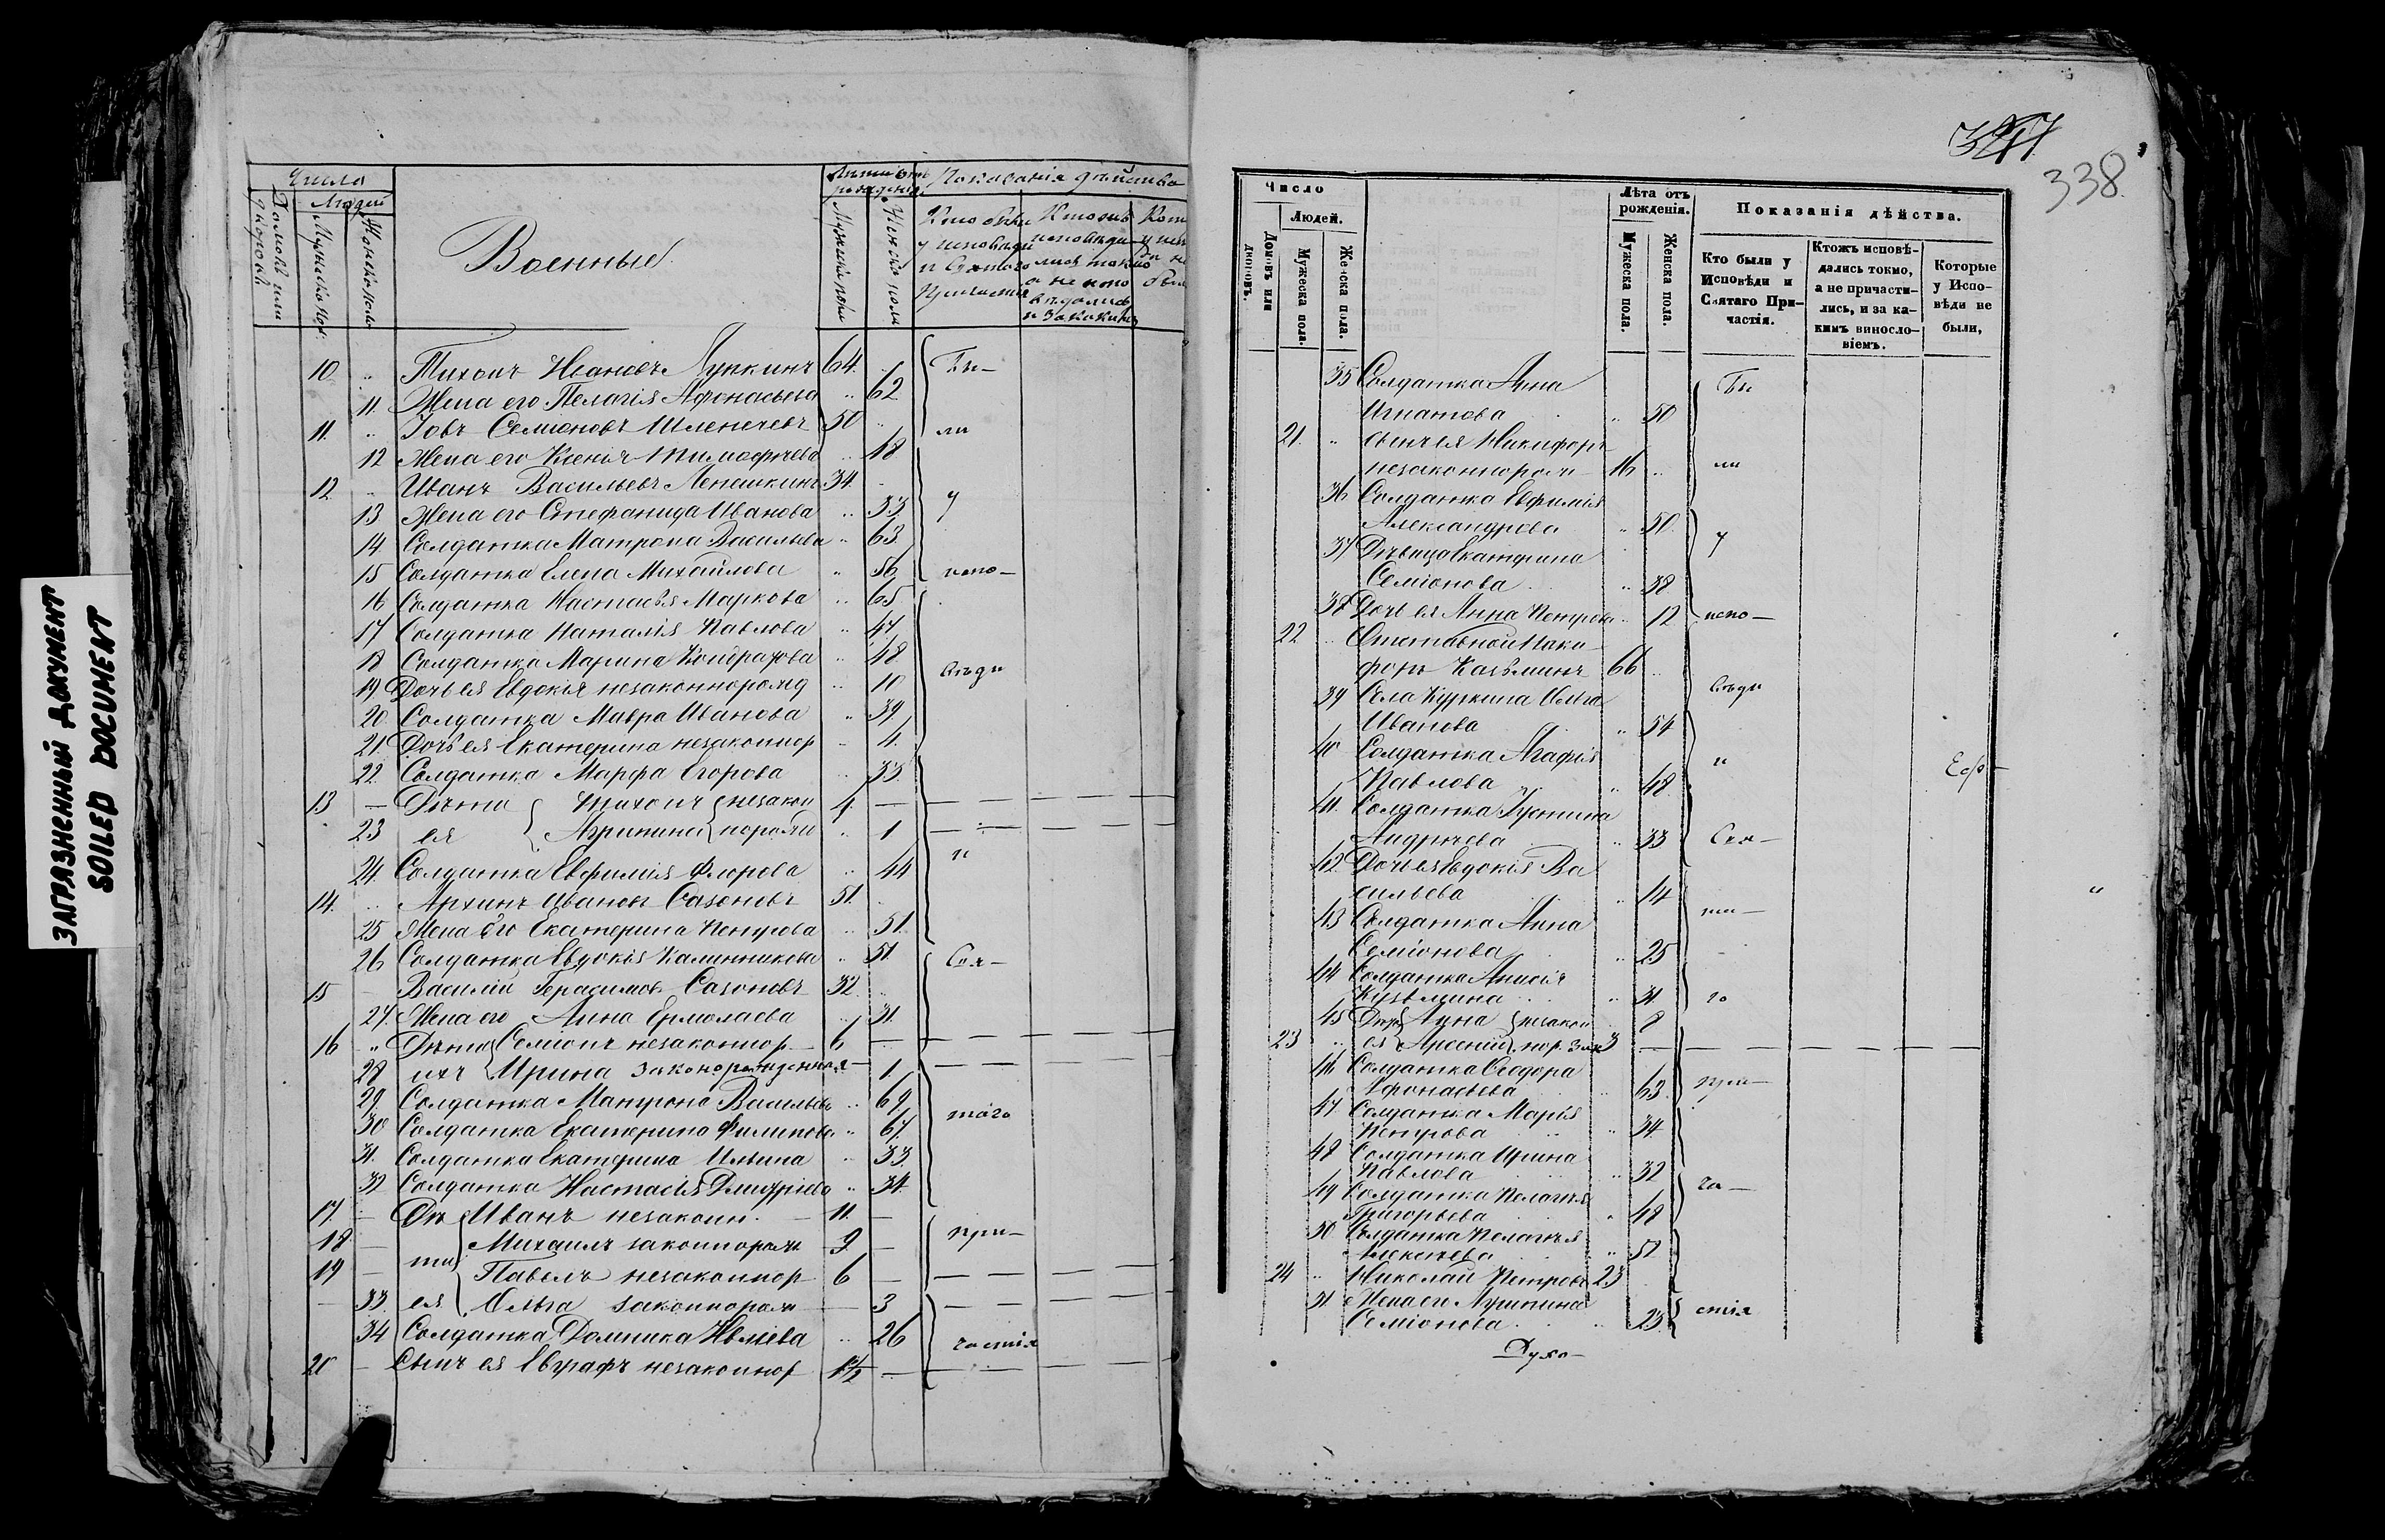 ЗАГРАЗНЕННЫЙ ДОКУМЕНТ
SOILED DOCUMENT
Число
Домовъ или дворовъ
Людей
Мужеска пол.
Женска пола
Военные
Лѣта отъ рожденія
Мужеска пола
Женска пола
Показанія дѣйства
Кто были у исповѣди и Святаго Причастія
10 " Тихонъ Ивановъ Лупкинъ 64 "
11. Жена его Пелагія Афонасьева " 62
11. " Іовъ Семіоновъ 50 "
12 Жена его Ксенія Тимофѣева " 48
12 " Иванъ Васильевъ Лепешкинъ 34 "
13 Жена его Стефанида Иванова " 33
14. Солдатка Матрона Васильева " 63
15 Солдатка Елена Михайлова " 56
16 Солдатка Настасья Маркова " 65
17 Солдатка Наталія Павлова " 47
18 Солдатка Марина Кондратова " 48
19 Дочь ея Евдокія незаконнорожд " 10
20 Солдатка Мавра Иванова " 39
21. Дочь ея Екатерина незаконнор " 4
22 Солдатка Марфа Егорова " 33
13 — Дѣти { Тихонъ { незакон 4 —
23 ея { Агрипина { норожд " 1
24. Солдатка Евфимія Флорова " 44
14. " Архипъ Ивановъ Сазоновъ 51. "
25 Жена его Екатерина Петрова " 51.
26 Солдатка Евдокія Калинникова " 51
15 — Василій Герасимов Сазоновъ 32 "
27. Жена его Анна Ермолаева " 31.
16 " Дѣти { Семіонъ незаконнор — 6 —
28 ихъ { Ирина законорожденная — 1
29. Солдатка Матрона Васильева " 69
30 Солдатка Екатерина Филипова " 67
31. Солдатка Екатерина Ильина " 33
32 Солдатка Настасія Дмитріева " 34
17. — Дѣ { Иванъ незаконн. — 11. —
18 — Михаилъ законнорож 9 —
19 — ти { Павелъ незаконнор 6 —
— 33. ея { Ольга законнорож — 3
34 Солдатка Домника Иевлева " 26
20 — Сынъ ея Евграфъ незаконнор 1½ —
Бы—
ли
у
испо—
вѣди
и
Свя—
таго
при—
частія
338
Число
Домовъ или дворовъ.
Людей.
Мужеска пола.
Женска пола.
Лѣта отъ рожденія.
Мужеска пола.
Женска пола.
Показанія дѣйства.
Кто были у Исповѣди и Святаго Причастія.
Ктожъ исповѣдались токмо, а не причастились, и за какимъ винословіемъ.
Которые у Исповѣди не были,
35 Солдатка Анна
Игнатова " 50
21. " сынъ ея Никифоръ
незаконнорож — 16 "
36 Солдатка Евфимія
Александрова " 50.
37 Дѣвица Екатерина
Семіонова " 38
38 Дочь ея Анна Петрова " 12
22 " Отставной Ники—
форъ Казьминъ 66 "
39 Села Куркина Ольга
Иванова " 54
40 Солдатка Агафія
Павлова " 48
41. Солдатка Устина
Андрѣева " 33
42 Дочь ея Евдокія Ва
сильева " 14
43 Солдатка Анна
Семіонова " 25
44 Солдатка Анисія
Кузьмина " 31.
45 Дѣт { Анна { незакон 8
23 " ея { Арсеній { нор. 3
46 Солдатка Ѳеодора
Афонасьева " 63
47. Солдатка Марія
Петрова " 34
48 Солдатка Ирина
Павлова " 32
49 Солдатка Пелагѣя
Григорьева " 48
50 Солдатка Пелагѣя
Алексѣева " 52
24 " Николай Петровъ 23
51. Жена его Агрипина
Семіонова " 23
Бы
ли
у
испо—
вѣди
и
Свя—
та—
го
при—
ча—
стія
Духо—